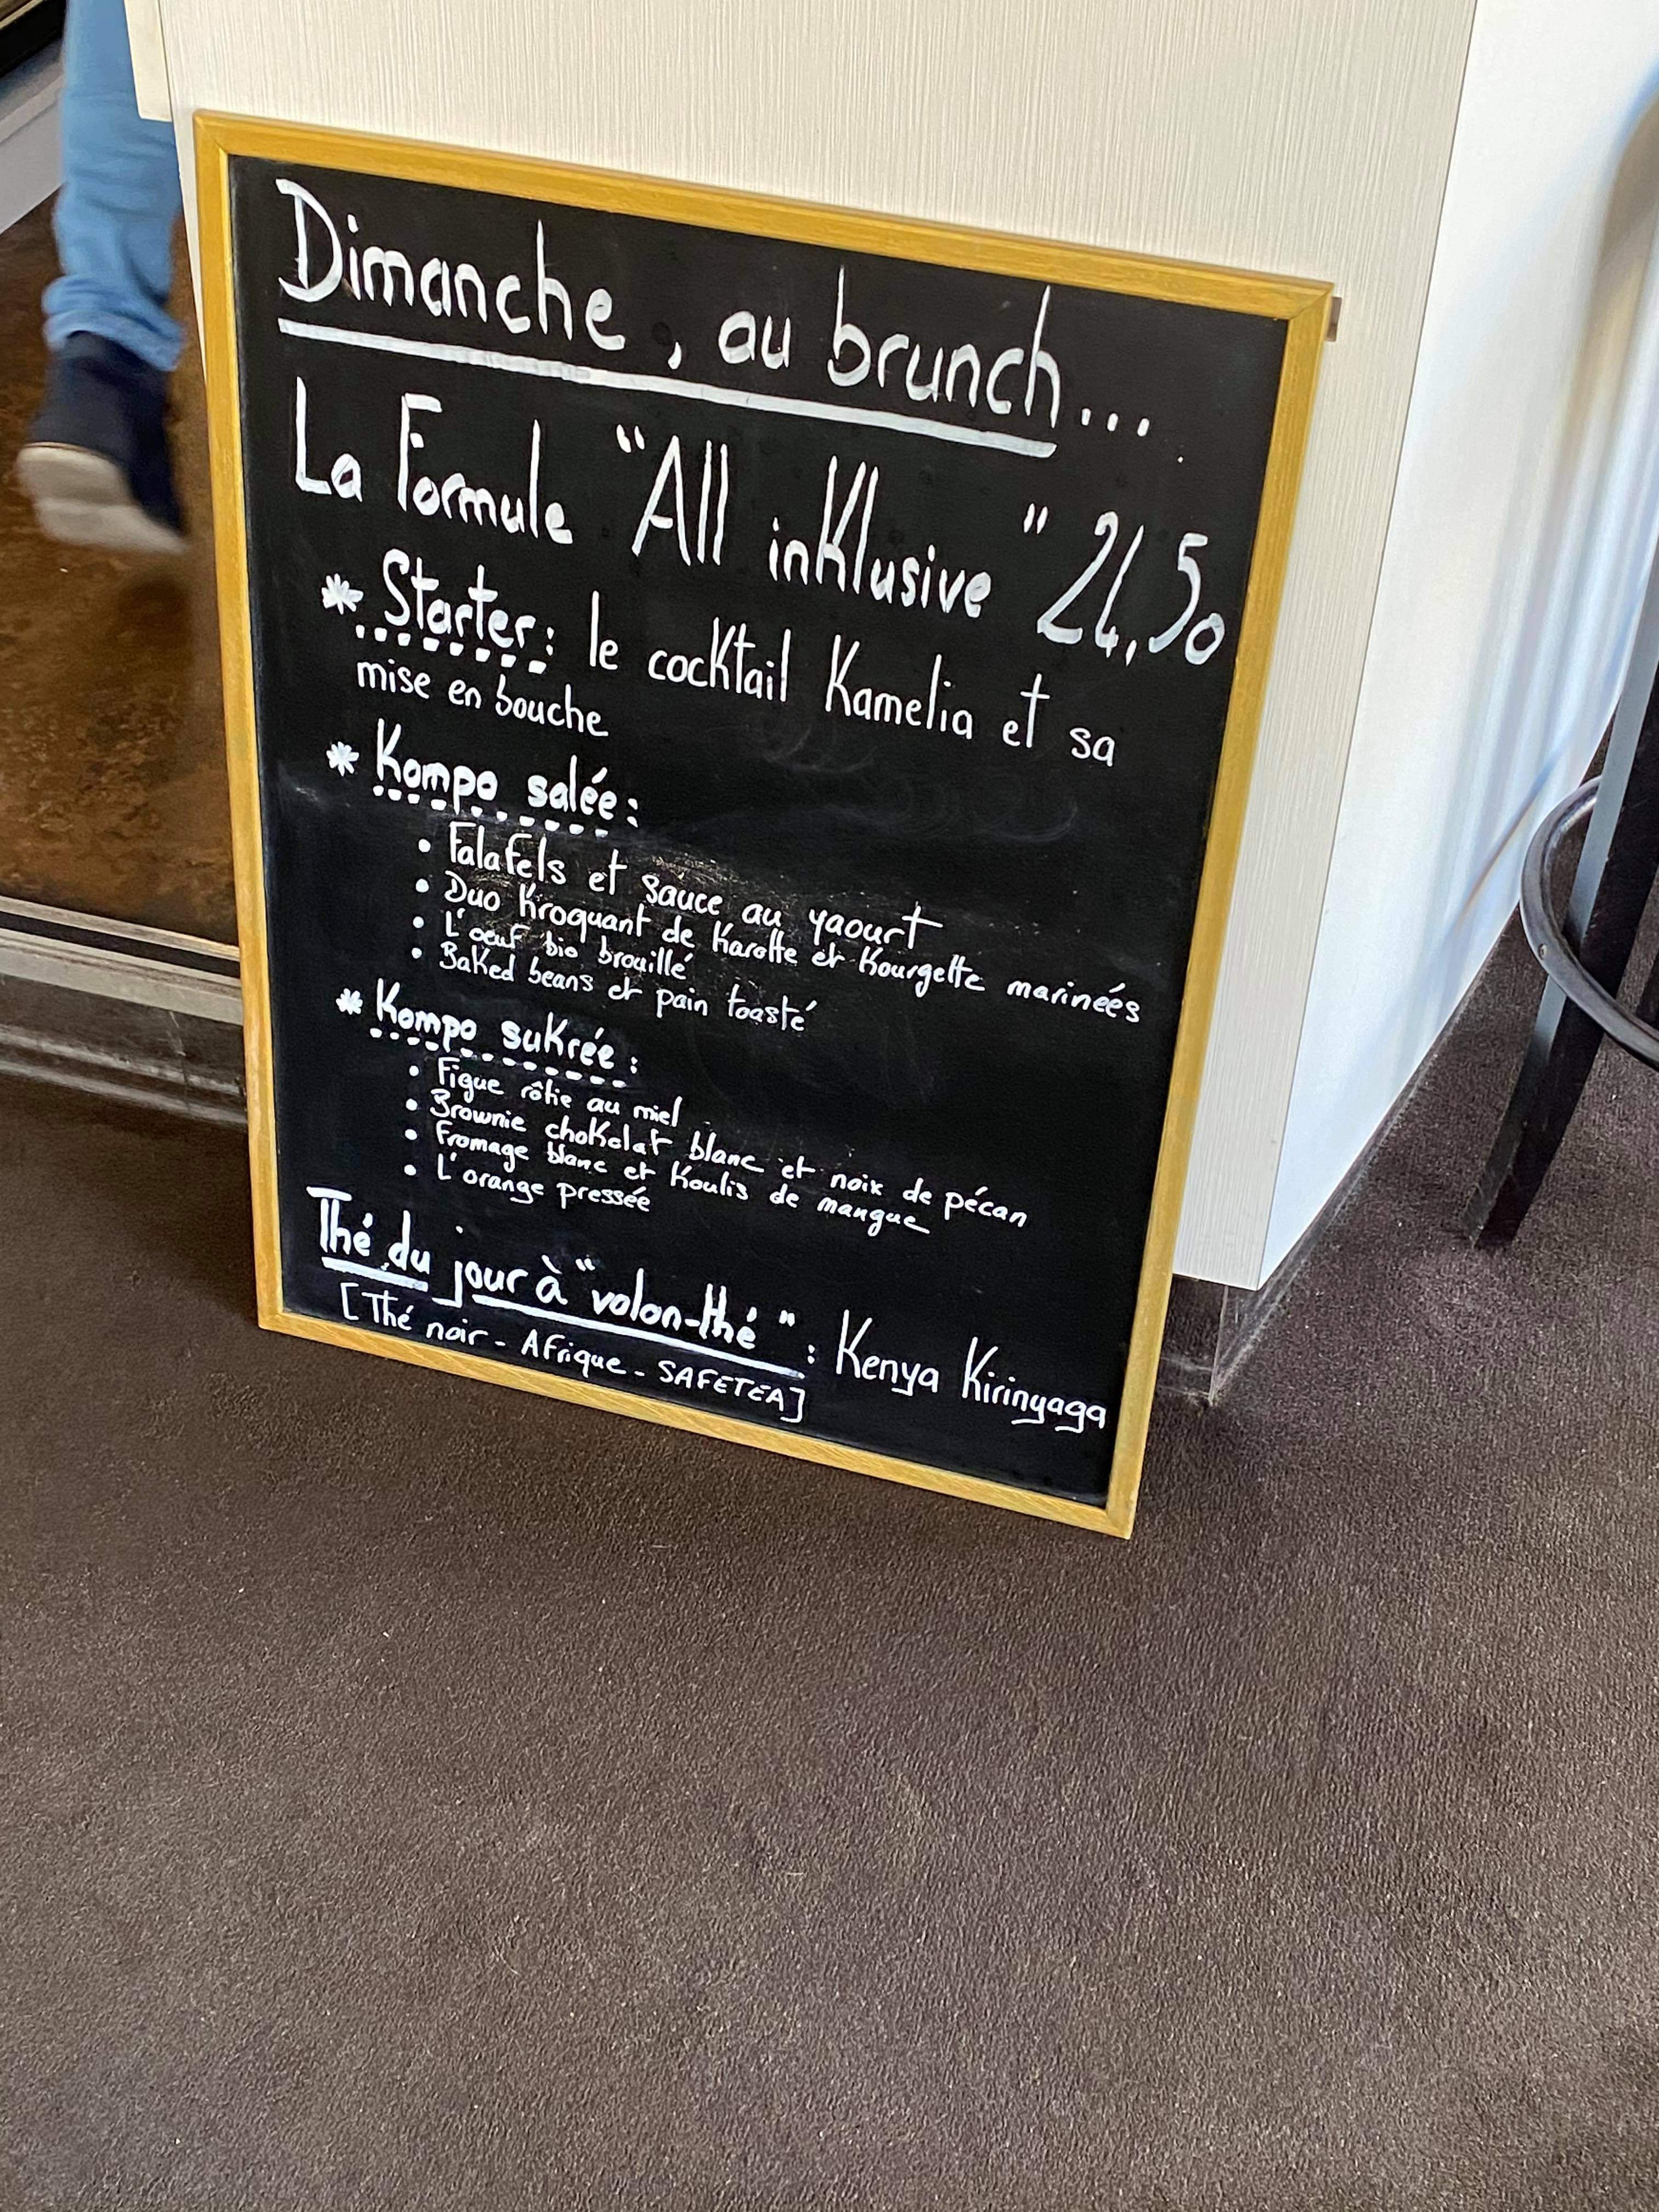 Dimanche, au brunch...
La Formule "All inKlusive" 21,50
* Starter : le cocKtail Kamelia et sa
mise en bouche
* Kompo salée :
• Falafels et sauce au yaourt
• Duo Kroquant de Karotte et Kourgette marineés
• L'oeuf bio brouillé
• BaKed beans et pain toasté
* Kompo suKrée :
• Figue rôtie au miel
• Brownie choKolat blanc et noix de pécan
• Fromage blanc et Koulis de mangue
• L'orange pressée
Thé du jour à "volon-thé" : Kenya Kirinyaga
[Thé noir - Afrique - SAFETEA]